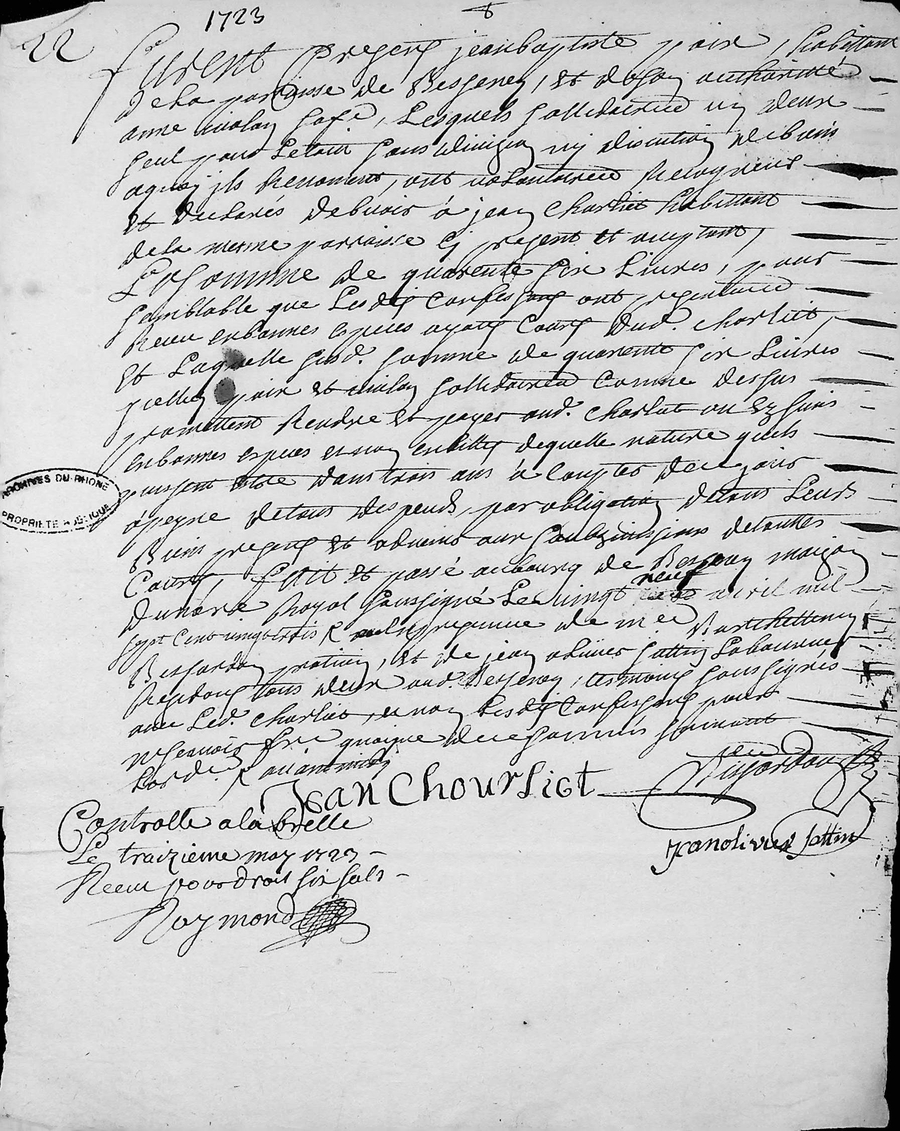 1723
22
furent presens jean baptiste poix, habittant
de la parroisse de Bessenay, et de soy authorizé
anne mulaton sa fe, Lesquels sollidairemt un deux
seul pour Le tout sans division ny discution de biens
aquoy ils Renoncent, ont volontairemt Recognus
et declarés debvoir à jean Charliot habittant
de la mesme parroisse cy present et acceptant,
La somme de quarente six Livres, pour
semblable que Lesdits Confessans ont presentemt
Receu en bonnes espèces ayans Cours dud. Charliot,
et Laquelle susd. somme de quarente six Livres
poix et sollidairemt Comme dessus
promettent Rendre et payer aud. Charliot ou ez siens
en bonnes espèces et non en billets de quelle nature quils
puissent estre dans trois ans à Comptes de ce jour
à peyne de tous despends, par obligation de tous Leurs
Biens presens et advenir aux soubmissions de touttes
Cours, fait et passé au bourg de Bessenay maison
du notre Royal soussigné Le vingt neuf avril mil
sept Cens vingt trois presence de me
pratitien, et de jean olivier sattin Laboureur
tous deux aud. Bessenay, tesmoins soussignés
avec Led. Charliot, et non Lesdits Confessans pour
ne sçavoir fre quoyque de ce sommés suivant
Lordce
Jean Chourliot
jean olivier sattin
Controllé a la brelle
Le traizieme may 1723
Receu pour droit six sols
Raymond
ARCHIVES DU RHONE
PROPRIETE PUBLIQUE